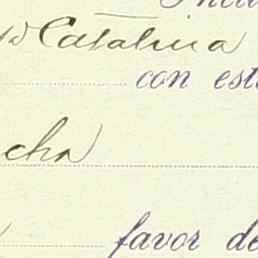 Catalina
con est
cha
favor de